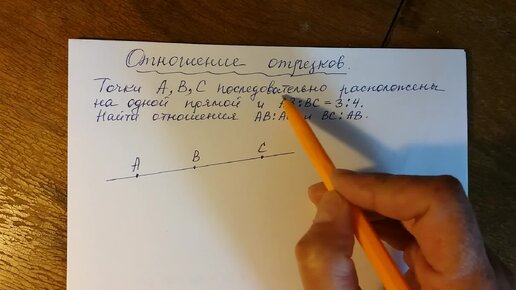 Отношение отрезков.
Точки A, B, C последовательно расположены
на одной прямой и AB:BC = 3:4.
Найти отношения AB:A и BC:AB.
A B C